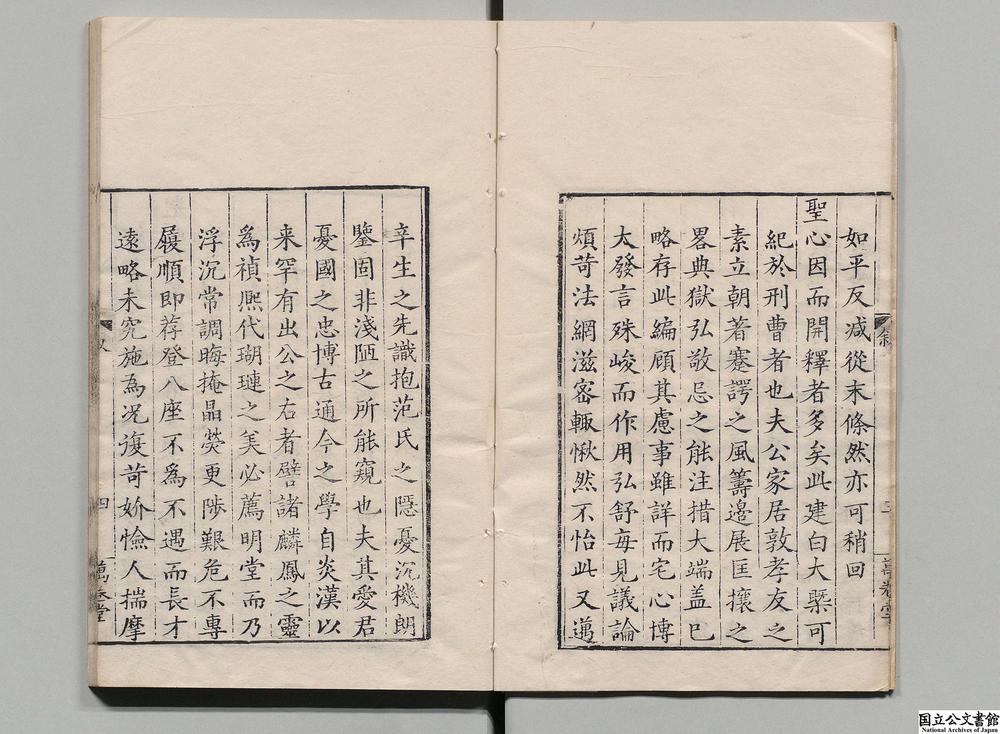 如平反减從末條然亦可稍回
聖心因而開釋者多矣此建白大槩可
紀於刑曹者也夫公家居敦孝友之
素立朝著蹇諤之風籌邊展匡攘之
畧典獄弘敬忌之能注措大端盖已
略存此編顧其慮事雖詳而宅心博
大發言殊峻而作用弘舒每見議論
煩苛法網滋密輙愀然不怡此又邁
辛生之先識抱范氏之隱憂沉機朗
鑒固非淺陋之所能窺也夫其愛君
憂國之忠博古通今之學自炎漢以
来罕有出公之右者譬諸麟鳳之靈
爲禎熙代瑚璉之美必薦明堂而乃
浮沉常調晦掩晶熒更陟艱危不專
履順即荐登八座不爲不遇而長才
遠略未究施為况復苛妎憸人揣摩
四
萬卷堂
叙
三
萬卷堂
国立公文書館
National Archives of Japan